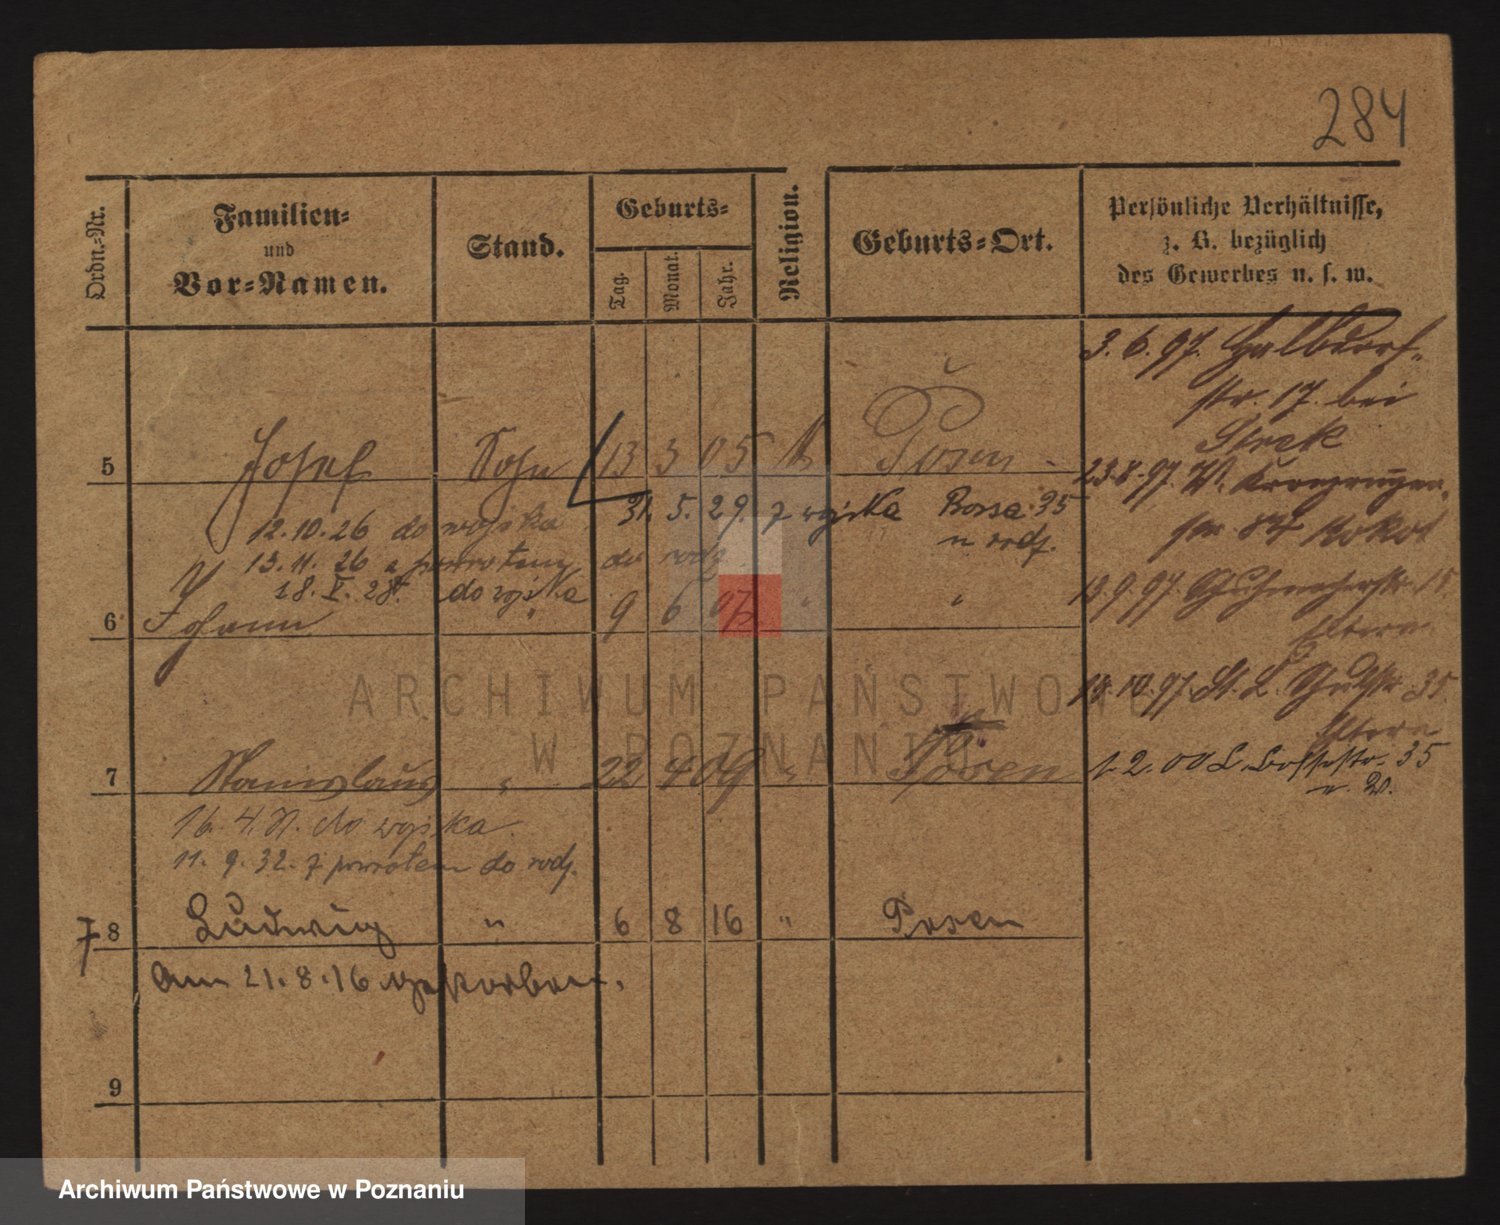 284
Ordn.-Nr.
Familien-
und
Vor-Namen.
Stand.
Geburts-
Tag.
Monat.
Jahr.
Religion.
Geburts-Ort.
Persönliche Verhältnisse,
z. B. bezüglich
des Gewerbes u. s. w.
3.6.97. Halbdorf-
str. 17. bei
5 Josef Sohn 13 3 05 Posen
23.8.97. W.
12.10.26 do wojska 31. 5. 29. z wojska Bossa. 35
u rodz.
13.11.26 z powrotem do rodz
18.V.28. do wojska
6 Johann " 9 6 07 " "
13.9.97. Schuhmacherstr. 15.
Eltern
18.10.97. St. L. 35
Eltern
7 Stanislaus " 22 4 09 " Posen
1.2.00 L. Bossestr. 35
16.4.31. do wojska.
11.9.32. z powrotem do rodz.
8 Ludwig " 6 8 16 " Posen
Am 21.8.16 gestorben.
9
ARCHIWUM PAŃSTWOWE
W POZNANIU
Archiwum Państwowe w Poznaniu